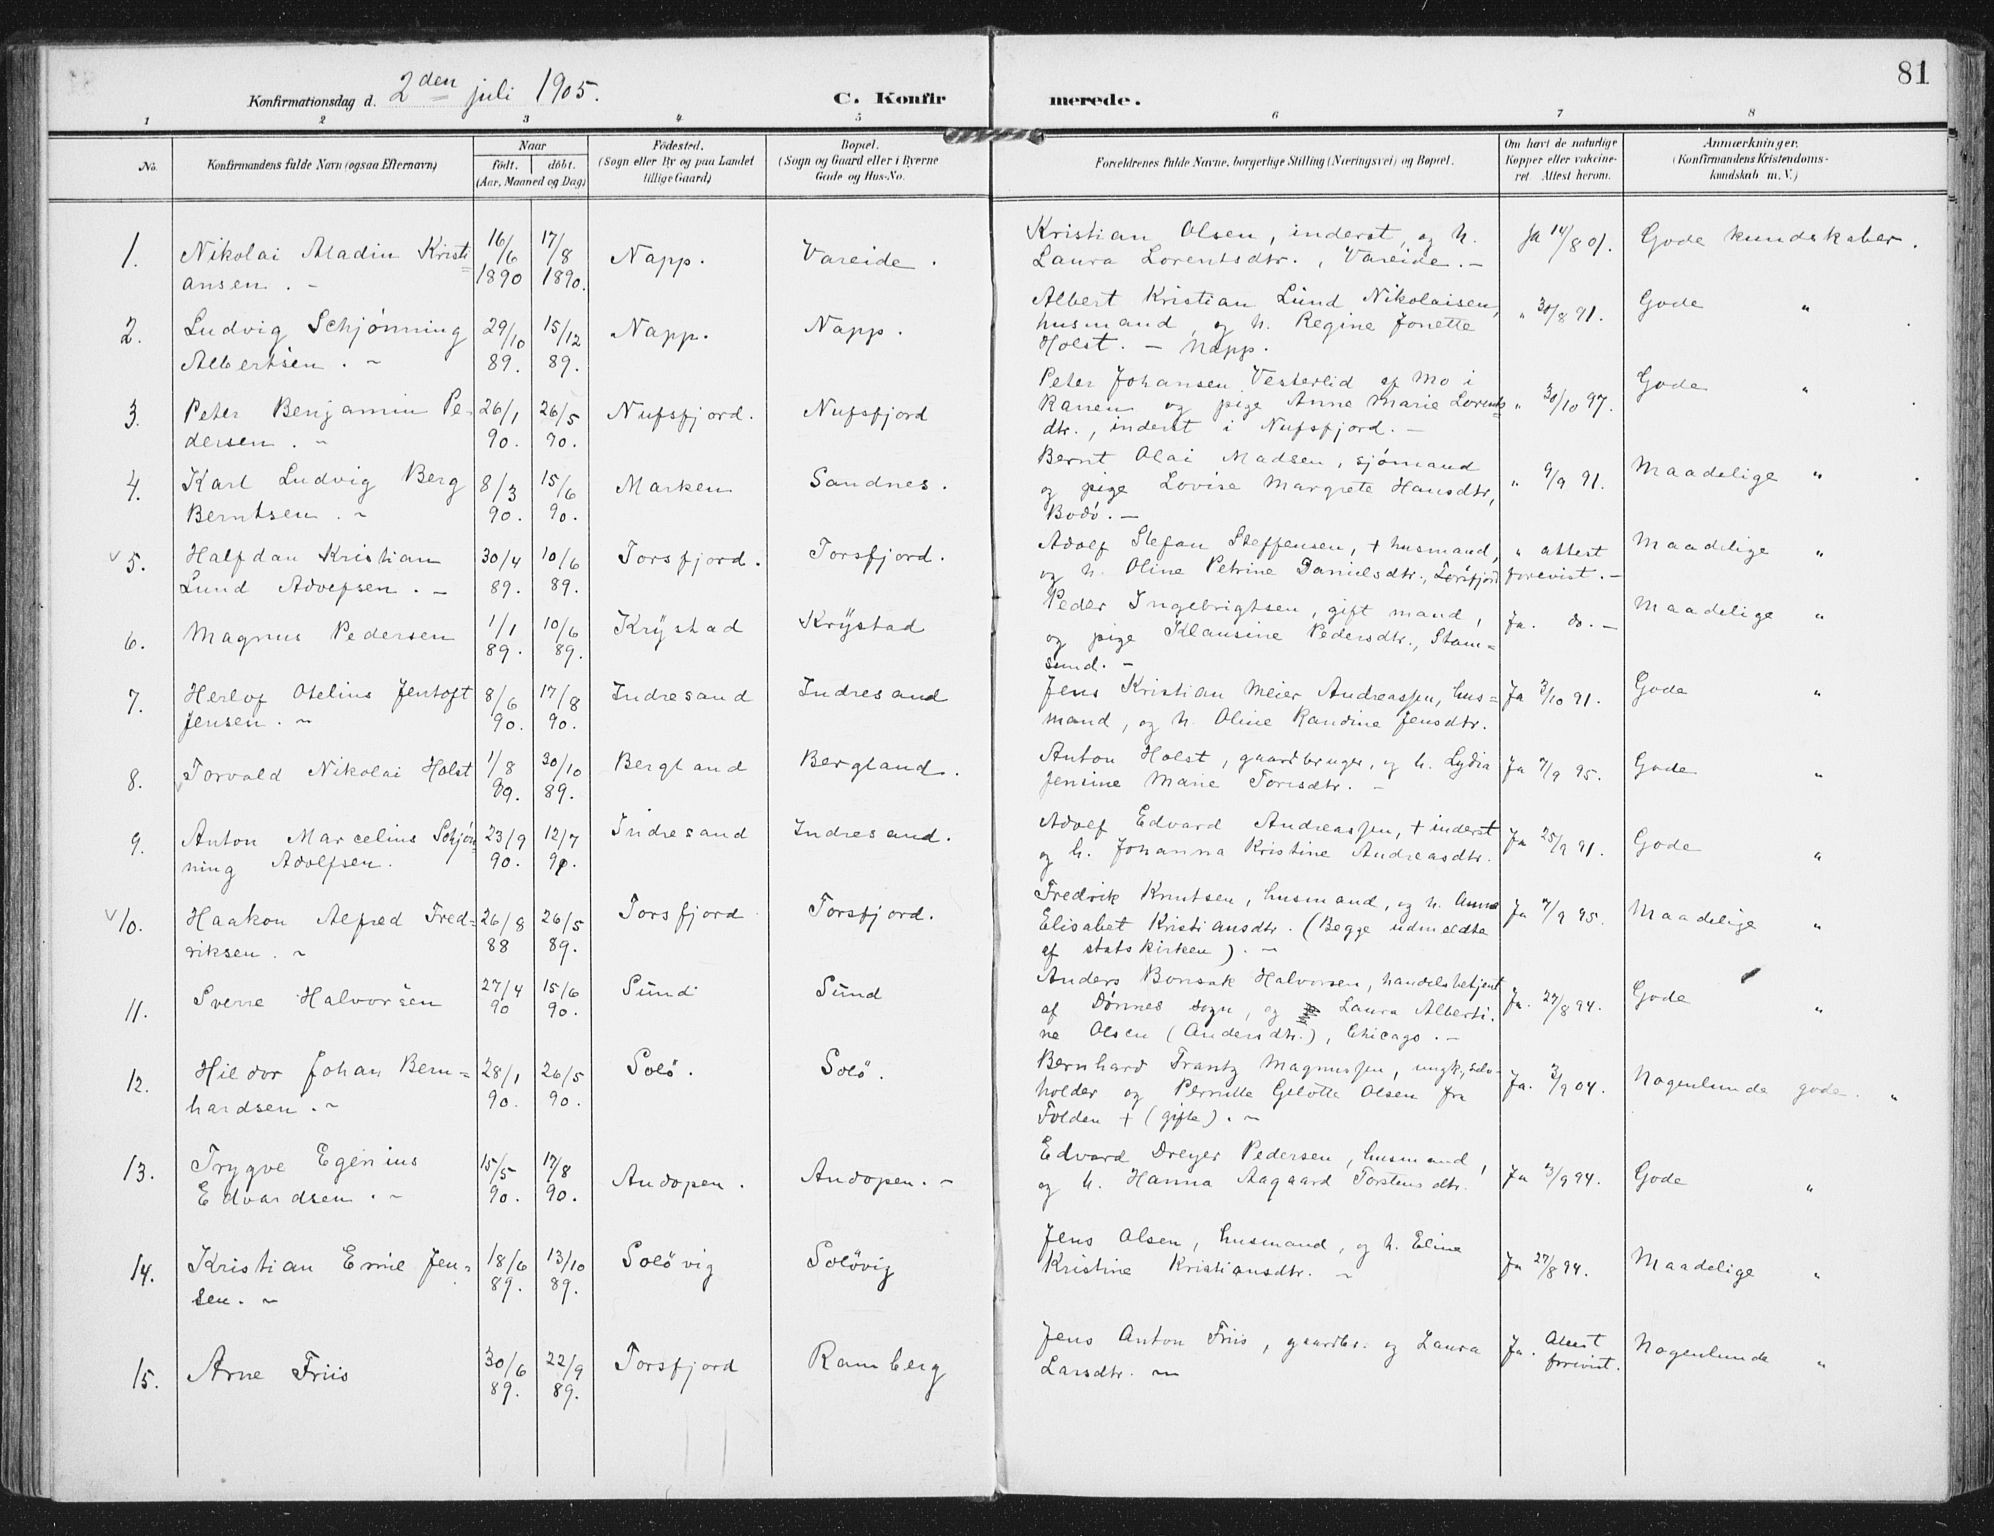 81
Konfirmationsdag d. 2den juli 1905. C. Konfir merede.
1 2 3 4 5 6 7 8
No. Konfirmandens fulde Navn (ogsaa Efternavn)
Naar
født. døbt.
(Aar, Maaned og Dag)
Fødested.
(Sogn eller By og paa Landet
tillige Gaard)
Bopæl.
(Sogn og Gaard eller i Byerne
Gade og Hus-No.
Forældrenes fulde Navne, borgerlige Stilling (Næringsvei) og Bopæl.
Om havt de naturlige
Kopper eller vakcine-
ret. Attest herom.
Anmærkninger.
(Konfirmandens Kristendoms-
kundskab m. V.)
1. Nikolai Aladin Kristi= 16/6 17/8 Napp. Vareide. Kristian Olsen, inderst, og h. Ja 14/8 01. Gode kundskaber.
ansen. 1890 1890. Laura Lorentsdtr., Vareide.
2. Ludvig Schjønning 29/10 15/12 Napp. Napp. Albert Kristian Lund Nikolaisen, " 30/8 91. Gode "
Albertsen. 89. 89. husmand, og h. Regine Jonette
Holst. — Napp.
3. Peter Benjamin Pe- 26/1 26/5 Nufsfjord. Nufsfjord Peter Johansen Vesterlid af Mo i " 30/10 97. Gode "
dersen. 90. 90. Ranen og pige Anne Marie Lorents
dtr., inderst i Nufsfjord.
4. Karl Ludvig Berg 8/3 15/6 Marken Sandnes. Bernt Olai Madsen, sjømand " 9/9 91. Maadelige "
Berntsen. 90. 90. og pige Lovise Margrete Hansdtr,
Bodø.
v 5. Halfdan Kristian 30/4 10/6 Torsfjord. Torsfjord. Adolf Stefan Steffensen, + husmand, " attest Maadelige "
Lund Adolfsen. 89. 89. og h. Oline Petrine Danielsdtr., Torsfjord forevist.
6. Magnus Pedersen 1/1 10/6 Krystad Krystad Peder Ingebrigtsen, gift mand, Ja. do. Maadelige "
89. 89. og pige Klausine Pedersdtr., Stam=
sund.
7. Herlof Otelius Jentoft 8/6 17/8 Indresand Indresand Jens Kristian Meier Andreassen, hus= Ja 3/10 91. Gode "
Jensen. 90. 90. mand, og h. Oline Randine Jensdtr.
8. Torvald Nikolai Holst 1/8 30/10 Bergland Bergland. Anton Holst, gaardbruger, og h. Lydia Ja 7/9 95. Gode "
89. 89. Jensine Marie Torisdtr.
9. Anton Marcelius Schjøn= 23/9 12/7 Indresand Indresand. Adolf Edvard Andreassen, + inderst Ja 25/9 91. Gode "
ning Adolfsen. 90. 91. og h. Johanna Kristine Andreasdtr.
v 10. Haakon Alfred Fred= 26/8 26/5 Torsfjord Torsfjord. Fredrik Knutsen, husmand, og h. Anna Ja 7/9 95. Maadelige "
riksen. 88 89. Elisabet Kristiansdtr. (Begge udmeldte
af statskirken).
11. Sverre Halvorsen 27/4 15/6 Sund Sund Anders Bonsak Halvorsen, handelsbetjent Ja. 27/8 94. Gode "
90 90. af Dønnes sogn, og Laura Alberti-
ne Olsen (Andersdtr.), Chicago.
12. Hildor Johan Bern= 28/1 26/5 Solø. Solø. Bernhard Frantz Magnussen, ungk, selv- Ja. 3/9 04. Nogenlunde gode. "
hardsen. 90. 90. holder og Pernille Gelotte Olsen fra
Folden + (gifte).
13. Trygve Egenius 15/5 17/8 Andopen. Andopen. Edvard Dreyer Pedersen, husmand, Ja 3/9 94. Gode "
Edvardsen. 90. 90. og h. Hanna Aagaard Torstensdtr.
14. Kristian Emil Jen= 18/6 13/10 Soløvig Soløvig Jens Olsen, husmand, og h. Eline Ja 27/8 94. Maadelige "
sen. 89. 89. Kristine Kristiansdtr.
15. Arne Friis 30/6 22/9 Torsfjord Ramberg Jens Anton Friis, gaardbr. og Laura Ja. Attest Nogenlunde "
89. 89. Larsdtr. forevist.